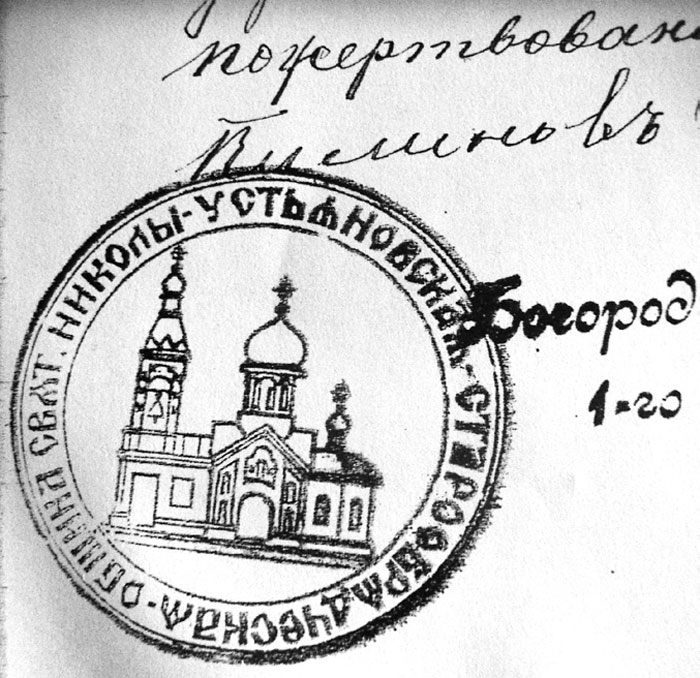 пожертвован
ОБЩИНА СВѦТ. НИКОЛЫ-УСТЬѦНОВСКАѦ-СТАРООБРѦДЧЕСКАѦ-
Богород
1-го